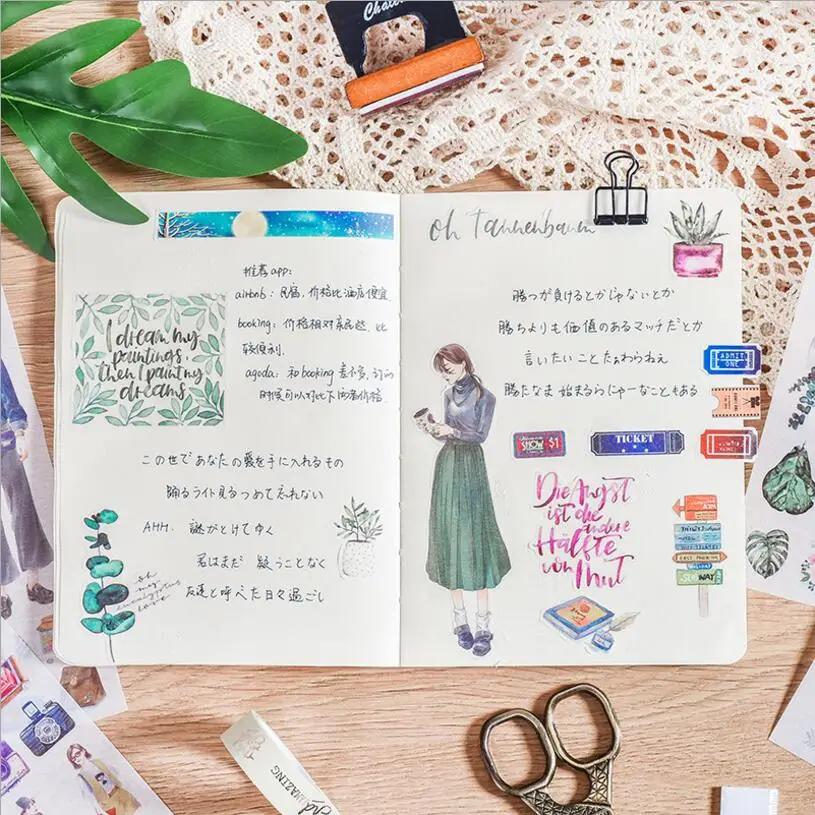 oh Tannenbaum
推荐app:
airbnb: 民宿, 价格比酒店便宜
booking: 价格相对亲民些, 比
较便利.
agoda: 和booking差不多, 订的
时候可以对比下两者价格.
I dream my
paintings,
then I paint my
dreams
この世であなたの愛を手に入れるもの
踊るライト見るつめて忘れない
AHH. 謎がとけてゆく
君はまだ 疑うことなく
友達と呼べた日々過ごし
oh
my
eucalyptus
love
勝つが負けるとかじゃないとか
勝ちよりも価値のあるマッチだとか
言いたいことたぁわらねぇ
勝たなま 始まるらにゃーなこともある
ADMIT
ONE
SHOW $1
TICKET
Die Angst
ist die
andere
Hälfte
von Mut
HOLIDAY
SUBWAY
AMAZING